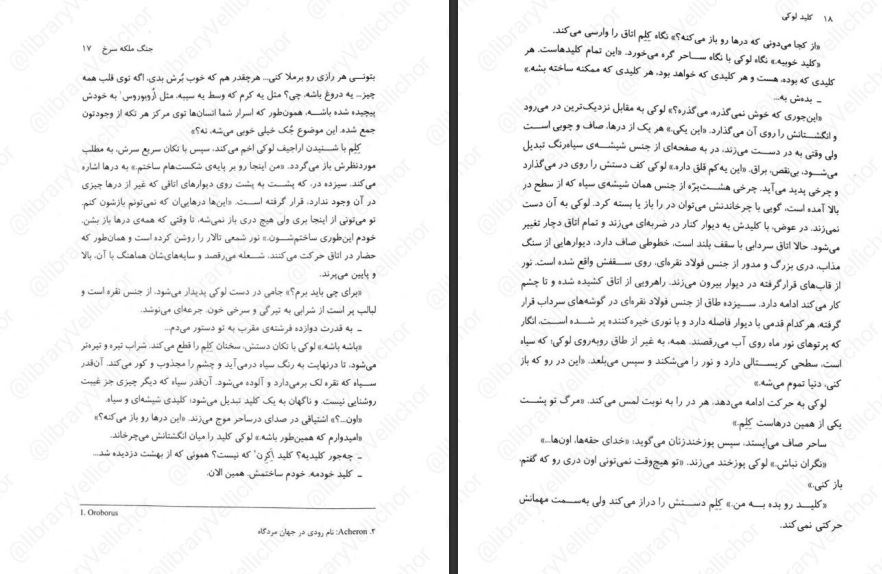 جنگ ملکه سرخ ۱۷
بتونی هر رازی رو برملا کنی... هرقدر هم که خوب بُرش بدی. اگه توی قلب همه
چیز... یه دروغ باشه، چی؟ مثل یه کرم که وسط یه سیبه. مثل اُروبوروس¹ به خودش
پیچیده شده باشه، همون‌طور که اسرار شما انسان‌ها توی مرکز هر تکه از وجودتون
جمع شده. این موضوع جُک خیلی خوبی می‌شه، نه؟»
کِلِم با شنیدن اراجیف لوکی اخم می‌کند، سپس با تکان سریع سرش، به مطلب
موردنظرش باز می‌گردد. «من اینجا رو بر پایه‌ی شکست‌هام ساختم.» به درها اشاره
می‌کند. سیزده در، که پشت به پشت روی دیوارهای اتاقی که غیر از درها چیزی
در آن وجود ندارد، قرار گرفته است. «این‌ها درهایی‌ان که نمی‌تونم بازشون کنم.
تو می‌تونی از اینجا بری ولی هیچ دری باز نمی‌شه، تا وقتی که همه‌ی درها باز بشن.
خودم این‌طوری ساختمشون.» نور شمعی تالار را روشن کرده است و همان‌طور که
حضار در اتاق حرکت می‌کنند، شعله می‌رقصد و سایه‌های‌شان هماهنگ با آن، بالا
و پایین می‌پرند.
«برای چی باید برم؟» جامی در دست لوکی پدیدار می‌شود، از جنس نقره است و
لبالب پر است از شرابی به تیرگی و سرخی خون. جرعه‌ای می‌نوشد.
ـ به قدرت دوازده فرشته‌ی مقرب به تو دستور می‌دم...
«باشه باشه.» لوکی با تکان دستش، سخنان کِلِم را قطع می‌کند. شراب تیره و تیره‌تر
می‌شود، تا درنهایت به رنگ سیاه درمی‌آید و چشم را مجذوب و کور می‌کند. آن‌قدر
سیاه که نقره لک برمی‌دارد و آلوده می‌شود. آن‌قدر سیاه که دیگر چیزی جز غیبت
روشنایی نیست. و ناگهان به یک کلید تبدیل می‌شود؛ کلیدی شیشه‌ای و سیاه.
«اون...؟» اشتیاقی در صدای درساحر موج می‌زند. «این درها رو باز می‌کنه؟»
«امیدوارم که همین‌طور باشه.» لوکی کلید را میان انگشتانش می‌چرخاند.
ـ چه‌جور کلیدیه؟ کلید آکِرِن² که نیست؟ همونی که از بهشت دزدیده شد...
ـ کلید خودمه. خودم ساختمش. همین الان.
1. Oroborus
۲. Acheron: نام رودی در جهان مردگاه
۱۸ کلید لوکی
«از کجا می‌دونی که درها رو باز می‌کنه؟» نگاه کِلِم اتاق را وارسی می‌کند.
«کلید خوبیه.» نگاه لوکی با نگاه ساحر گره می‌خورد. «این تمام کلیدهاست. هر
کلیدی که بوده، هست و هر کلیدی که خواهد بود، هر کلیدی که ممکنه ساخته بشه.»
ـ بده‌ش به...
«این‌جوری که خوش نمی‌گذره، می‌گذره؟» لوکی به مقابل نزدیک‌ترین در می‌رود
و انگشتانش را روی آن می‌گذارد. «این یکی.» هر یک از درها، صاف و چوبی است
ولی وقتی به در دست می‌زند، در به صفحه‌ای از جنس شیشه‌ی سیاه‌رنگ تبدیل
می‌شود، بی‌نقص، براق. «این یه‌کم قلق داره.» لوکی کف دستش را روی در می‌گذارد
و چرخی پدید می‌آید. چرخی هشت‌پرّه از جنس همان شیشه‌ی سیاه که از سطح در
بالا آمده است، گویی با چرخاندنش می‌توان در را باز یا بسته کرد. لوکی به آن دست
نمی‌زند. در عوض، با کلیدش به دیوار کنار در ضربه‌ای می‌زند و تمام اتاق دچار تغییر
می‌شود. حالا اتاق سردابی با سقف بلند است، خطوطی صاف دارد، دیوارهایی از سنگ
مذاب، دری بزرگ و مدور از جنس فولاد نقره‌ای، روی سقفش واقع شده است. نور
از قاب‌های قرارگرفته در دیوار بیرون می‌زند. راهرویی از اتاق کشیده شده و تا چشم
کار می‌کند ادامه دارد. سیزده طاق از جنس فولاد نقره‌ای در گوشه‌های سرداب قرار
گرفته، هرکدام قدمی با دیوار فاصله دارد و با نوری خیره‌کننده پر شده است، انگار
که پرتوهای نور ماه روی آب می‌رقصند. همه، به غیر از طاق روبه‌روی لوکی؛ که سیاه
است، سطحی کریستالی دارد و نور را می‌شکند و سپس می‌بلعد. «این در رو که باز
کنی، دنیا تموم می‌شه.»
لوکی به حرکت ادامه می‌دهد، هر در را به نوبت لمس می‌کند. «مرگ تو پشت
یکی از همین درهاست کِلِم.»
ساحر صاف می‌ایستد، سپس پوزخندزنان می‌گوید: «خدای حقه‌ها، اون‌ها...»
«نگران نباش.» لوکی پوزخند می‌زند. «تو هیچ‌وقت نمی‌تونی اون دری رو که گفتم،
باز کنی.»
«کلید رو بده به من.» کِلِم دستش را دراز می‌کند ولی به‌سمت مهمانش
حرکتی نمی‌کند.
@libraryVellichor